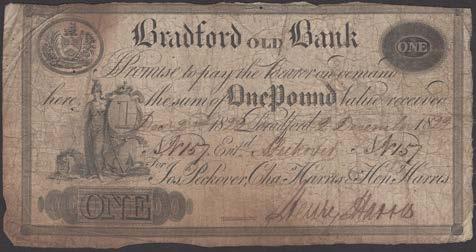 Bradford OLD Bank
ONE
I Promise to pay the bearer on demand
here, the sum of One Pound Value received
1
Decr 2 1822 Bradford 2 December 1822
No 157 Entd No 157
For
Jos. Peckover, Chas Harris & Heny Harris
ONE
Henry Harris